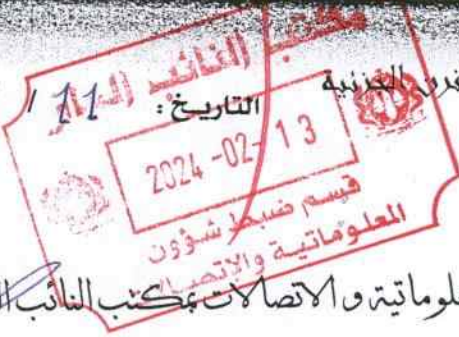 مكتب النائب العام
التاريخ : 11 /
2024 -02- 13
قسم ضبط شؤون
المعلوماتية والاتصالات
لوماتية و الاتصالات بمكتب النائب ال